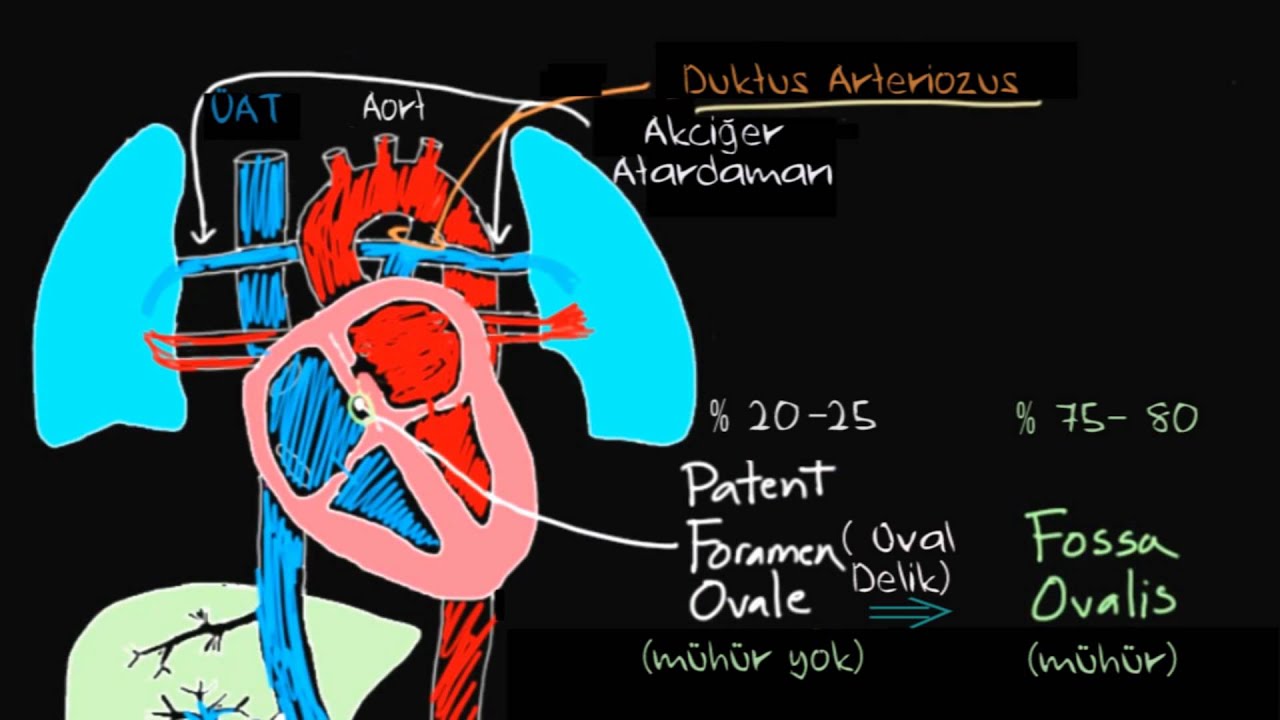 Duktus Arteriozus
ÜAT
Aort
Akciğer
Atardamarı
% 20-25
% 75- 80
Patent
Foramen
Ovale
( Oval
Delik)
Fossa
Ovalis
(mühür yok)
(mühür)